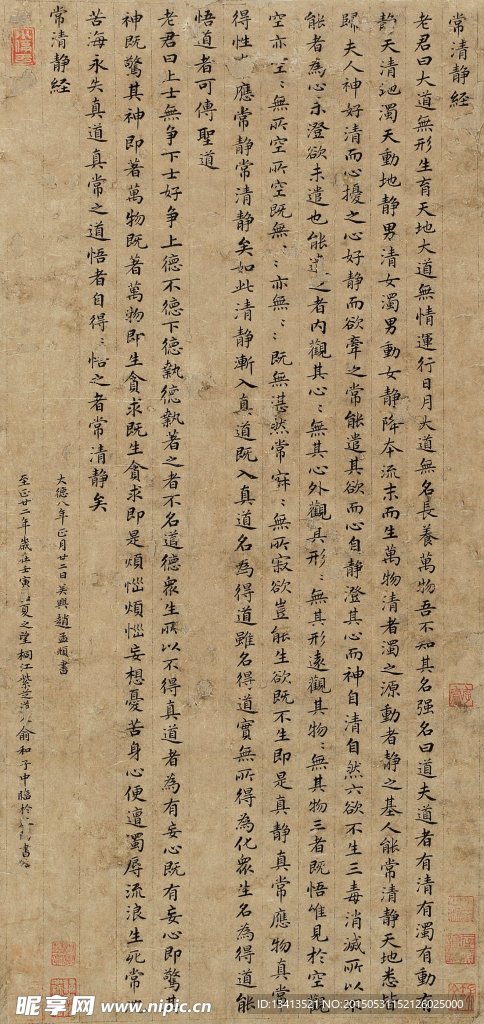 常清静經
老君曰大道無形生育天地大道無情運行日月大道無名長養萬物吾不知其名强名曰道夫道者有清有濁有動有
静天清地濁天動地静男清女濁男動女静降本流末而生萬物清者濁之源動者静之基人能常清静天地悉皆
歸夫人神好清而心擾之心好静而欲牽之常能遣其欲而心自静澄其心而神自清自然六欲不生三毒消滅所以不
能者為心未澄欲未遣也能遣之者内觀其心〻無其心外觀其形〻無其形遠觀其物〻無其物三者既悟唯見於空觀
空亦空〻無所空所空既無〻〻亦無〻〻既無湛然常寂〻無所寂欲豈能生欲既不生即是真静真常應物真常
得性 應常静常清静矣如此清静漸入真道既入真道名為得道雖名得道實無所得為化衆生名為得道能
悟道者可傳聖道
老君曰上士無争下士好争上德不德下德執德執著之者不名道德衆生所以不得真道者為有妄心既有妄心即驚其
神既驚其神即著萬物既著萬物即生貪求既生貪求即是煩惱煩惱妄想憂苦身心便遭濁辱流浪生死常
苦海永失真道真常之道悟者自得〻悟之者常清静矣
常清静經
大德八年正月廿二日吴興趙孟頫書
至正廿二年歲在壬寅 夏之望桐江紫芝 俞和子中臨於 書
昵图网 www.nipic.com
ID:13413521 NO:20150531152126025000